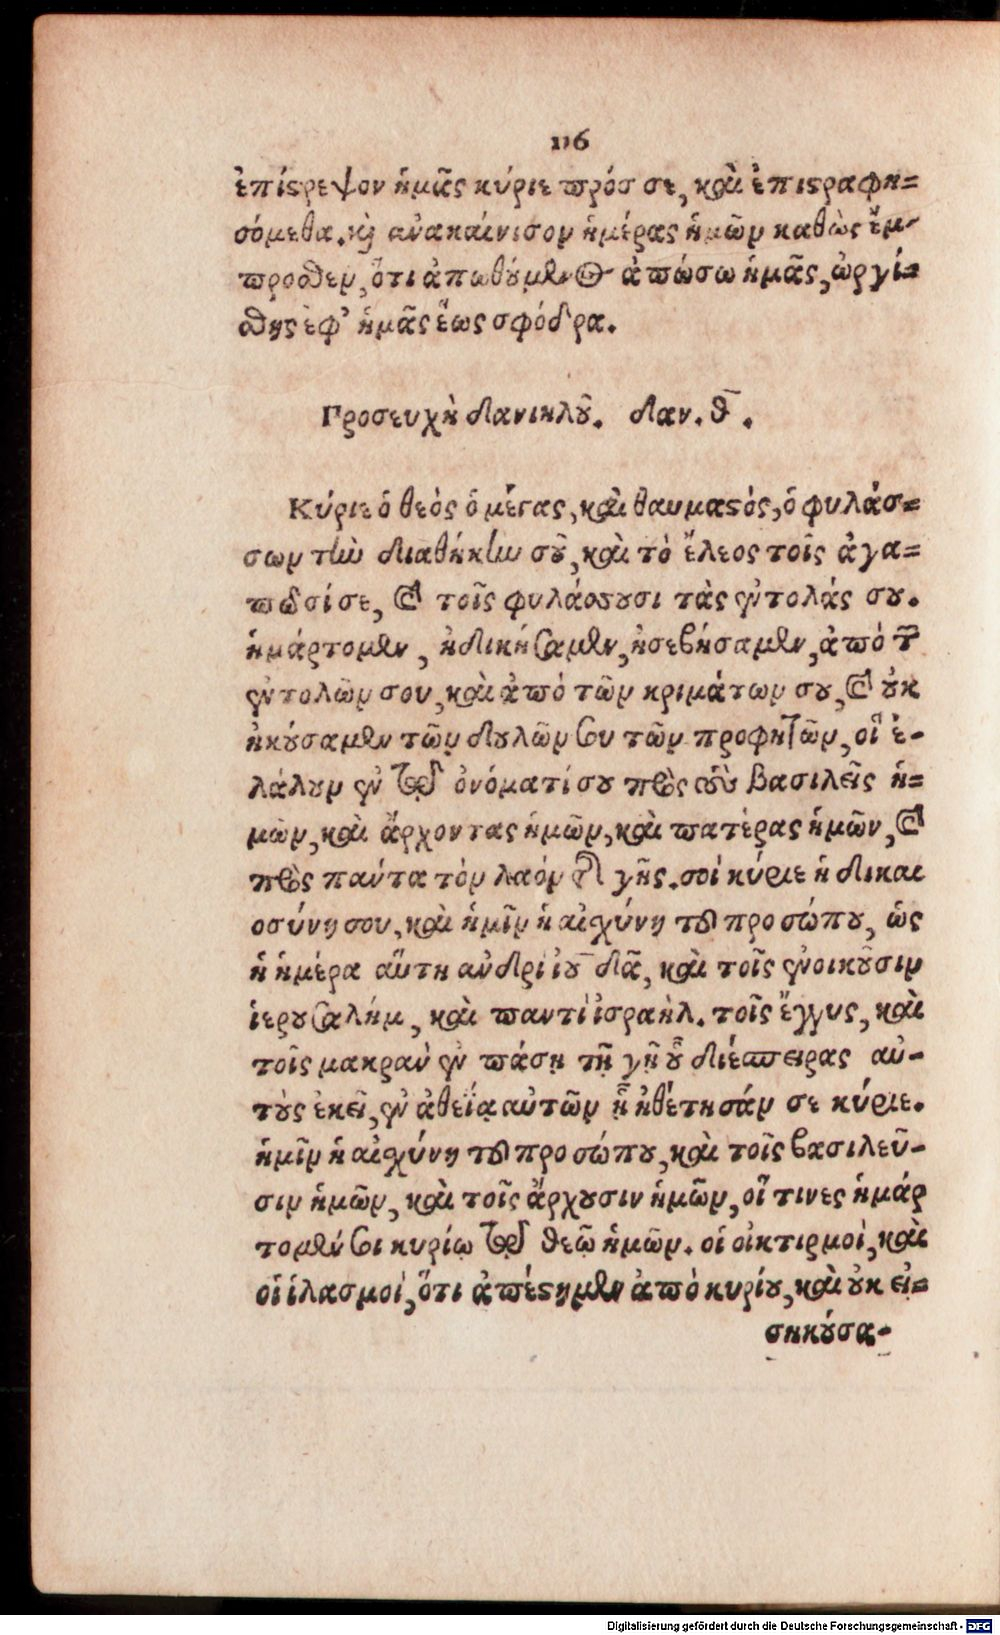 116
ἐπίστρεψον ἡμᾶς κύριε πρόσ σε, καὶ ἐπιστραφη=
σόμεθα. καὶ ἀνακαίνισον ἡμέρας ἡμῶν καθὼς ἔμ-
προσθεν, ὅτι ἀπωθούμενος ἀπώσω ἡμᾶς, ὠργί=
σθης ἐφ' ἡμᾶς ἕως σφόδρα.
Προσευχὴ δανιηλοῦ. δαν. θ̄.
Κύριε ὁ θεὸς ὁ μέγας, καὶ θαυμαστός, ὁ φυλάσ=
σων τὴν διαθήκην σοῦ, καὶ τὸ ἔλεος τοῖς ἀγα=
πῶσί σε, καὶ τοῖς φυλάσσουσι τὰς ἐντολάς σου.
ἡμάρτομεν, ἠδικήσαμεν, ἠσεβήσαμεν, ἀπὸ τῶν
ἐντολῶν σου, καὶ ἀπὸ τῶν κριμάτων σου, καὶ οὐκ
ἠκούσαμεν τῶν δουλῶν σου τῶν προφητῶν, οἳ ἐ-
λάλουν ἐν τῷ ὀνόματί σου πρὸς τοὺς βασιλεῖς ἡ=
μῶν, καὶ ἄρχοντας ἡμῶν, καὶ πατέρας ἡμῶν, καὶ
πρὸς πάντα τὸν λαόν τῆς γῆς. σοί κύριε ἡ δικαι
οσύνη σου, καὶ ἡμῖν ἡ αἰσχύνη τοῦ προσώπου, ὡς
ἡ ἡμέρα αὕτη ἀνδρὶ ἰοῦδα, καὶ τοῖς ἐνοικοῦσιν
ἱερουσαλήμ, καὶ παντὶ ἰσραὴλ. τοῖς ἔγγυς, καὶ
τοῖς μακρὰν ἐν πάσῃ τῇ γῇ οὗ διέσπειρας αὐ-
τοὺς ἐκεῖ, ἐν ἀθεΐᾳ αὐτῶν ᾗ ἠθέτησάν σε κύριε.
ἡμῖν ἡ αἰσχύνη τοῦ προσώπου, καὶ τοῖς βασιλεῦ-
σιν ἡμῶν, καὶ τοῖς ἄρχουσιν ἡμῶν, οἵ τινες ἡμάρ
τομέν σοι κυρίῳ τῷ θεῷ ἡμῶν. οἱ οἰκτιρμοὶ, καὶ
οἱ ἱλασμοί, ὅτι ἀπέστημεν ἀπὸ κυρίου, καὶ οὐκ εἰ=
σηκούσα-
Digitalisierung gefördert durch die Deutsche Forschungsgemeinschaft - DFG